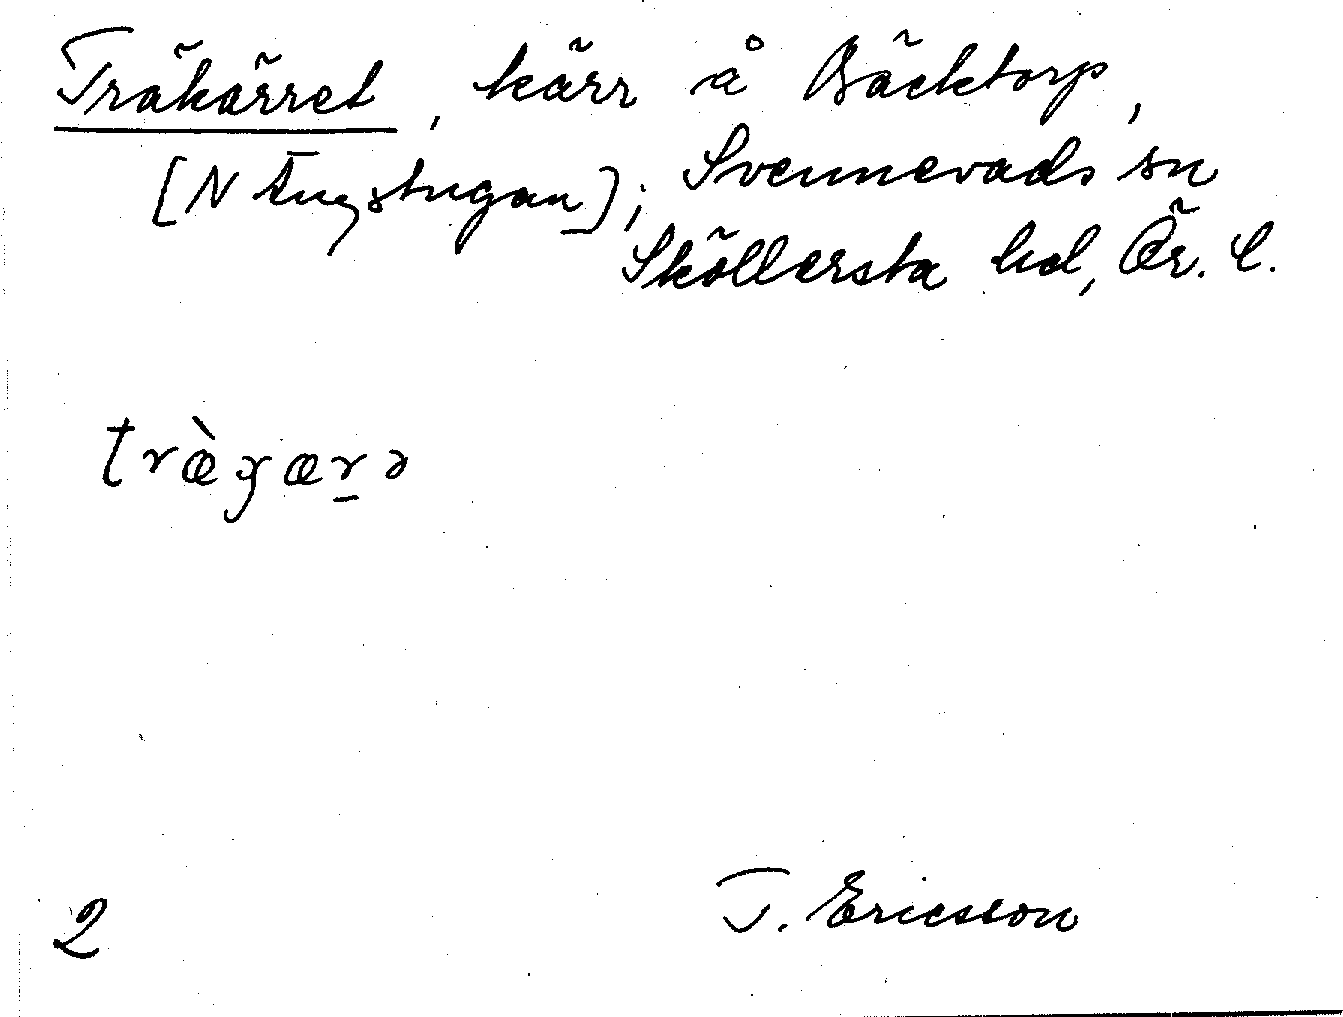 Träkärret, kärr å Bäcktorp,
[N Ängstugan]; Svennevads sn
Sköllersta hd, Ör. l.
træ̀ɣær̲ə
2
T. Ericsson